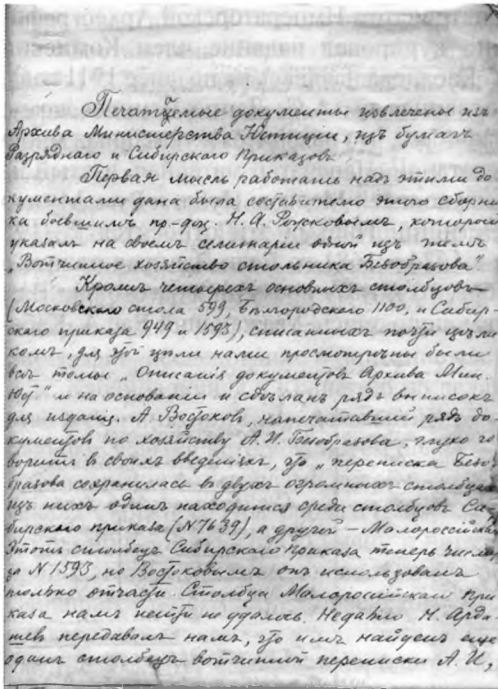 Печатаемые документы извлечены изъ
Архива Министерства Юстиціи, изъ бумагъ
Разряднаго и Сибирскаго Приказовъ.
Первая мысль работать надъ этими до-
кументами дана была составителю этого сборни-
ка бывшимъ пр.-доц. Н. А. Рожковымъ, который
указалъ на своемъ семинаріи одной изъ темъ
„Вотчинное хозяйство стольника Безобразова"
Кромѣ четырехъ основныхъ столбцовъ
(Московскаго стола 599, Бѣлгородскаго 1100, и Сибир-
скаго приказа 949 и 1593), списанныхъ почти цѣли-
комъ, для этой цѣли нами просмотрѣны были
всѣ томы „Описанія документовъ Архива Мин.
Юст." и на основаніи и сдѣланъ рядъ выписокъ
для изданія. А Востоковъ, напечатавшій рядъ до-
кументовъ по хозяйству А. И. Безобразова, глухо го-
воритъ въ своихъ введеніяхъ, что „переписка Безо-
бразова сохранилась въ двухъ огромныхъ столбцахъ
изъ нихъ одинъ находится среди столбцовъ Си-
бирскаго приказа (N 7639), а другой – Малороссійскаго
Этотъ столбецъ Сибирскаго приказа теперь числ
за N 1593, но Востоковымъ онъ использованъ
только отчасти. Столбца Малороссійскаго При
каза намъ найти не удалось. Недавно Н. Арда-
шевъ передавалъ намъ, что имъ найденъ еще
одинъ столбецъ вотчинной переписки А. И,